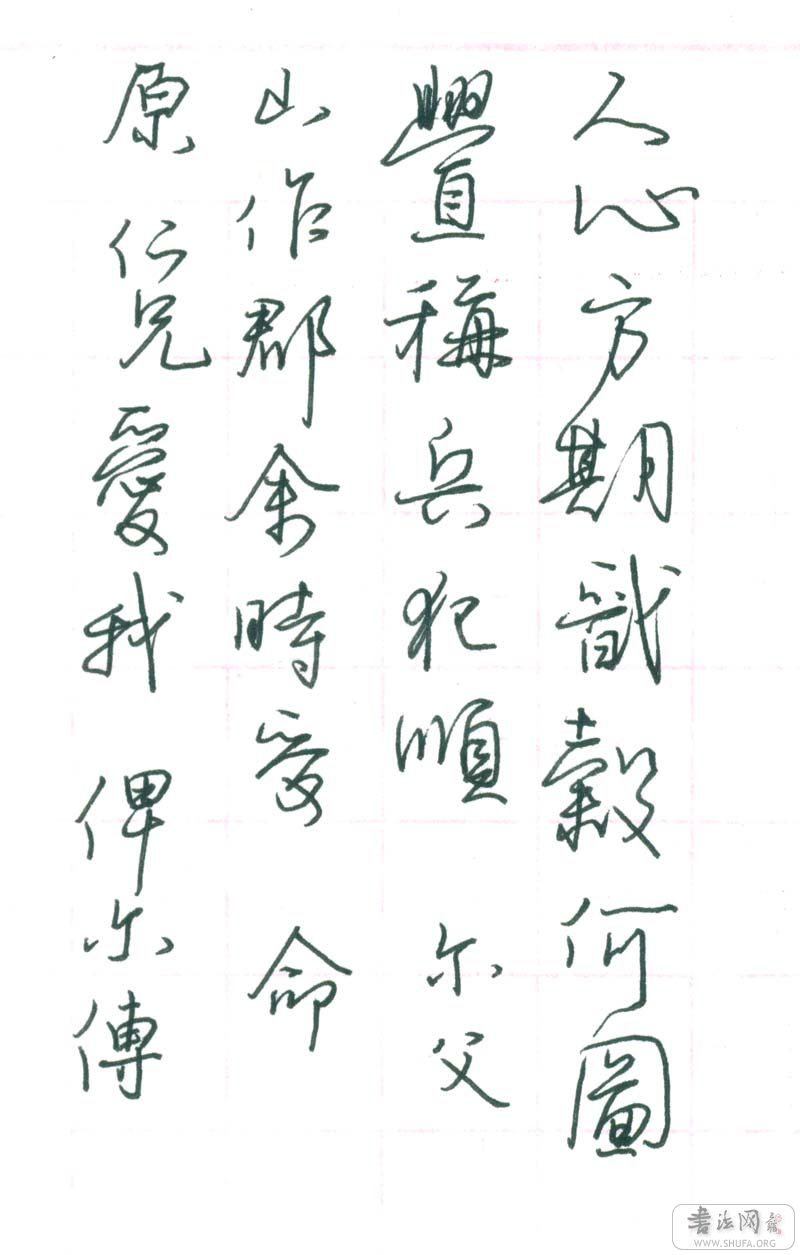 人心方期戩穀何圖
釁稱兵犯順 尔父
山作郡余時受 命
原 仁兄愛我 俾尔傳
書法网
WWW.SHUFA.ORG